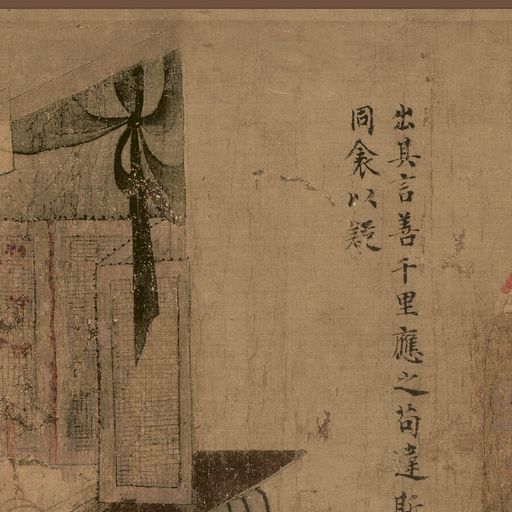 出其言善千里應之苟違斯
同衾以疑